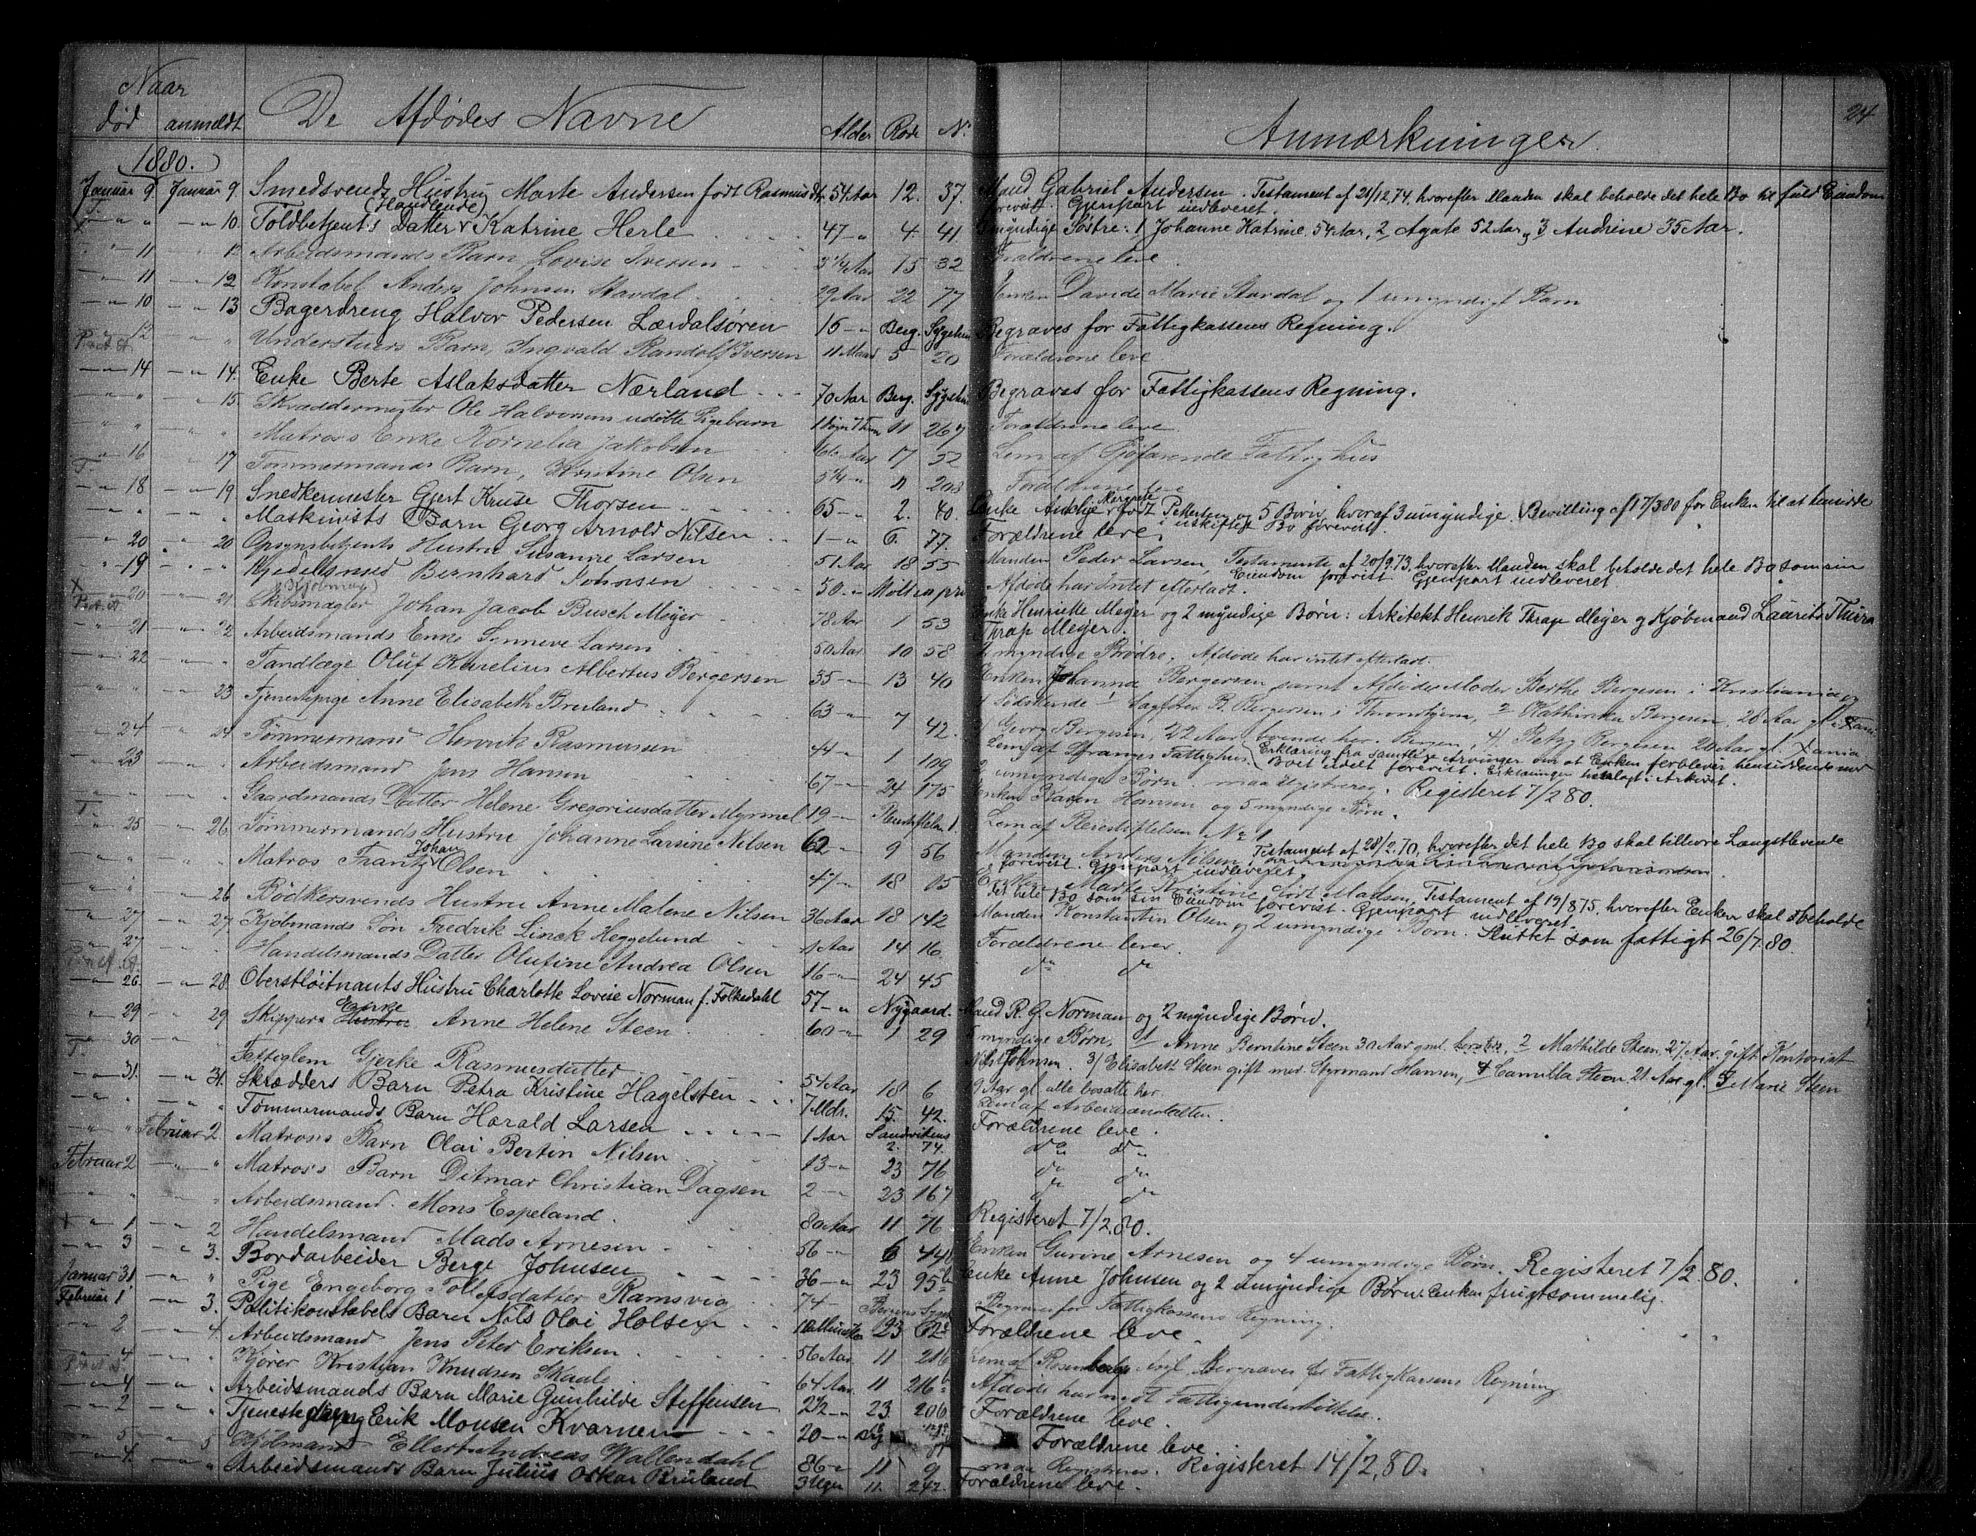 24
Naar
død anmeldt De Afdødes Navne Alder Rode No Anmærkninger.
1880.
Januar 9 Januar 9 Smedsvends Hustru Marte Andersen født Rasmusdtr 54 Aar 12. 37. Mand Gabriel Andersen. Testament af 21/12.74, hvorefter Manden skal beholde det hele Bo til fuld Eiendom
forevist. Gjenpart indleveret.
(Handlende)
10. Toldbetjents Datter Katrine Herle 47 4 41 myndige Søstre: 1 Johanne Katrine, 54 Aar, 2, Agate 52 Aar og 3 Andrine 35 Aar.
11 Arbeidsmands Barn Lovise Iversen 3 1/4 Aar 15 32 Forældrene leve.
11 12 Konstabel Anders Johnsen Stavdal 29 Aar 22 77 Enken Davide Marie Stavdal og 1 umyndigt Barn
10 13 Bagerdreng Halvor Pedersen Lærdalsøren 15 Berg. Sygehus Begraves for Fattigkassens Regning.
12 Understuers Barn, Ingvald Randolf Iversen 11 Maan 5 20 Forældrene leve
14 14. Enke Berte Aslaksdatter Nærland 70 Aar Berg. Sygehus Begraves for Fattigkassens Regning.
15 Skræddermester Ole Halvorsens udøbte Pigebarn 11 267 Forældrene leve
Matros's Enke Kornelia Jakobsen 66 Aar 17 52 Lem af Fattighus
16 17 Tømmermands Barn, Berntine Olsen 5 1/4 11 208 Forældrene leve
18 19 Snedkermester Gjert Kruse Thorsen 65 2. 40. Enke Margrete født Pettersen og 5 Børn, hvoraf 3 umyndige. Bevilling af 17/3 80 for Enken til at hensidde
i uskiftet Bo forevist.
Maskinists Barn Georg Arnold Nilsen 1 6. 77. Forældrene leve
20 20 Opsynsbetjents Hustru Susanne Larsen 51 Aar 18 55 Manden Peder Larsen, Testamente af 20/9.73, hvorefter Manden skal beholde det hele Bo som sin
Eiendom forevist Gjenpart indleveret
19 Kjedelsmed Bernhard Johnsen 50 Afdøde har intet efterladt.
(Kjøbmag)
20 21 Skibsmægler Johan Jacob Busch Meyer 78 Aar 1 53 Enke Henriette Meyer og 2 myndige Børn: Arkitekt Henrik Thrap Meyer og Kjøbmand Laurits
Thrap Meyer.
21 22 Arbeidsmands Enke Synneve Larsen 50 Aar 10 58 2 myndige Brødre. Afdøde har intet efterladt.
22 Tandlæge Oluf Kurelius Albertus Bergersen 35 13 40 Enken Johanna Bergersen samt Afdødes Moder Berthe Bergesen i Kristiania og
4 Sødskende 1 Sagfører B. Bergersen i Throndhjem, 2 Kathinka Bergesen, 28 Aar gl. Xania
23 Tjenestepige Anne Elisabeth Breiland 63 7 42. Georg Bergesen, 22 Aar, boende her Bergen, 4/ Betzy Bergesen 20 Aar gl. Xania
Lem af Stranges Fattighus. Erklæring fra samtlige Arvinger om at Enken forbliver hensiddende med
Boet udelt forevist. Erklæringen henlagt i Arkivet.
24 24 Tømmermand Henrik Rasmussen 44 1 109 2 umyndige Børn. maa registreres. Registeret 7/2 80.
23 Arbeidsmand Jens Hansen 67 24 175 Enken Karen Hansen og 5 myndige Børn.
Gaardmands Datter Helene Gregoriusdatter Myrmel 19 Lem af Pleiestiftelsen No 1
25 26 Tømmermands Hustru Johanne Larsine Nilsen 62 9 56 Manden Anders Nilsen, Testament af 28/2.70, hvorefter det hele Bo skal tilhøre Længstlevende
forevist. Gjenpart indleveret.
Matros Frantz Johan Olsen 47 18 15 Enken Marte Kristine født Madsen, Testament af 19/8 75, hvorefter Enken skal beholde
det hele Bo som sin Eiendom forevist. Gjenpart indleveret.
26 Bødkersvends Hustru Anne Malene Nilsen 36 Aar 18 142 Manden Konstantin Olsen og 2 umyndige Børn. Sluttet som fattigt 26/7 80.
27 27 Kjøbmands Søn Fredrik Linck Heggelund 1 Aar 14 16 Forældrene lever
27 Handelsmands Datter Olufine Andrea Olsen 16 24 45 do do
26. 28. Oberstløitnants Hustru Charlotte Lovise Norman f. Falkedahl 57 Nygaard. Mand R. G. Norman og 2 myndige Børn.
29 29 Skippers Enke Anne Helene Steen 60 1 29 5 myndige Børn. 1/ Anne Berntine Steen 30 Aar gml. 2 Mathilde Steen 27 Aar gift Kontorist
30 Nils Johnsen. 3/ Elisabeth Steen gift med Styrmand Hansen, 4 Camilla Steen 21 Aar gl. 5 Marie Steen
9 Aar gl alle bosatte her.
Fattiglem Gjerke Rasmusdatter 54 Aar 18 6 Lem af Arbeidsanstalten.
31. 31. Skrædders Barn Petra Kristine Hagelsteen 7 Mdr. 15. 42. Forældrene leve.
Tømmermands Barn Harald Larsen 1 Aar Sandvikens 2. 74. do do
Februar 2. Matros's Barn Olai Bertin Nilsen 13 23 76 do do
Februar 2 Matros's Barn Ditmar Christian Dagsen 2 23 167 do do
Arbeidsmand Mons Espeland. 80 Aar 11 76 Registeret 7/2 80.
1 2 Handelsmand Mads Arnesen 56 6 Enken Gurine Arnesen og 4 umyndige Børn. Registeret 7/2 80.
3 3. Bordarbeider Berge Johnsen 36 23 95 Enke Anne Johnsen og 2 umyndige Børn. Enken frugtsommelig.
Januar 31 Pige Engeborg Tollefsdatter Ramsvig 74 Begraves for Fattigkassens Regning.
Februar 1 3. Politikonstabels Barn Nils Olai Holsen 23 62 Forældrene leve.
2 4. Arbeidsmand Jens Peter Eriksen 56 Aar 11 216 Lem af Rosenbergs Begraves for Fattigkassens Regning
Kjører Kristian Knudsen Skaale 64 Aar 11 216 Afdøde har nydt Fattigunderstøttelse.
4 Arbeidsmands Barn Marie Gunhilde Steffensen 2 1/2 23 206 Forældrene leve.
2 Tjenestedreng Erik Monsen Kvarnen 20 Forældrene leve.
5 5 Kjøbmand Ellert Andreas Wallendahl 86 11 9 maa Registreres. Registeret 14/2,80.
4. Arbeidsmands Barn Julius Oskar Bruland 3 Uger 11. 242. Forældrene leve.